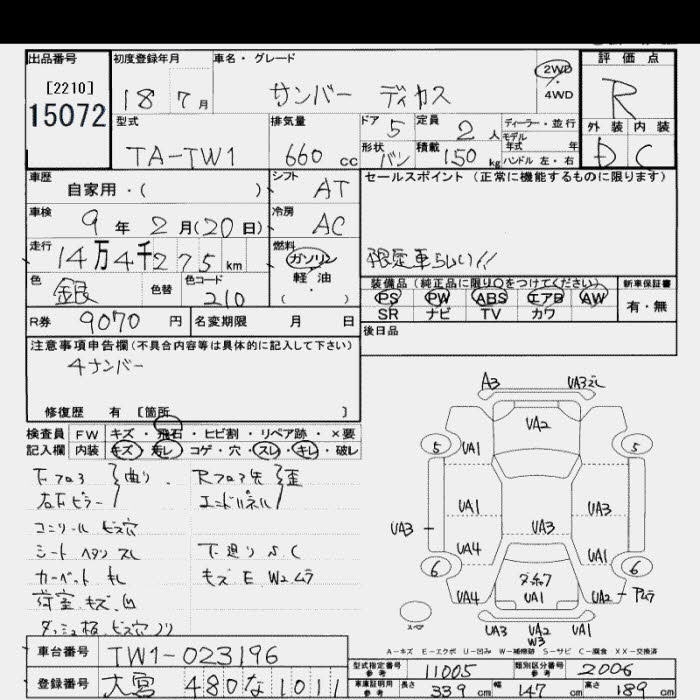 出品番号 初度登録年月 車名・グレード 評価点
[2210] 18 7月 サンバー ディカス 2WD・4WD R
15072
型式 排気量 ドア 5 定員 2人 ディーラー・並行 外装 内装
TA-TW1 660cc 形状 バン 積載 150kg モデル年式 年 D C
ハンドル 左・右
車歴 シフト セールスポイント(正常に機能するものに限ります)
自家用・( ) AT
車検 冷房
9年2月(20日) AC
走行 燃料
14万4千275km ガソリン 限定車らしい!!
色 色替 色コード 軽油
銀 210 ・( )
装備品(純正品に限り○をつけてください) 新車保証書
PS PW ABS エアB AW 有・無
SR ナビ TV カワ
R券 9070円 名変期限 月 日 後日品
注意事項申告欄(不具合内容等は具体的に記入して下さい)
4ナンバー
修復歴 有 [箇所 ]
検査員 FW キズ・飛石・ヒビ割・リペア跡・×要
記入欄 内装 キズ・汚レ コゲ・穴・スレ・キレ・破レ
下フロア 曲り Rフロア先 歪
右下ピラー エンドパネル
コンソール ビス穴
シート ヘタリ スレ 下廻り S.C
カーペット キレ キズ E W2 ムラ
荷室 キズ 凹
ダッシュ板 ビス穴 ノリ
A3 UA3
UA2
5 UA1 5
UA1 UA3
UA3 UA3
UA4 UA1
6 6
UA4 UA1 UA2
スペア
UA3 UA2 UA1
W3
A-キズ E-エクボ U-凹み W-補修跡 S-サビ C-腐食 XX-交換済
車台番号 TW1-023196
型式指定番号 参考 11005 類別区分番号 参考 2006
登録番号 大宮 480 な 1011
車庫証明用 参考 長さ 339cm 幅 147cm 高さ 189cm